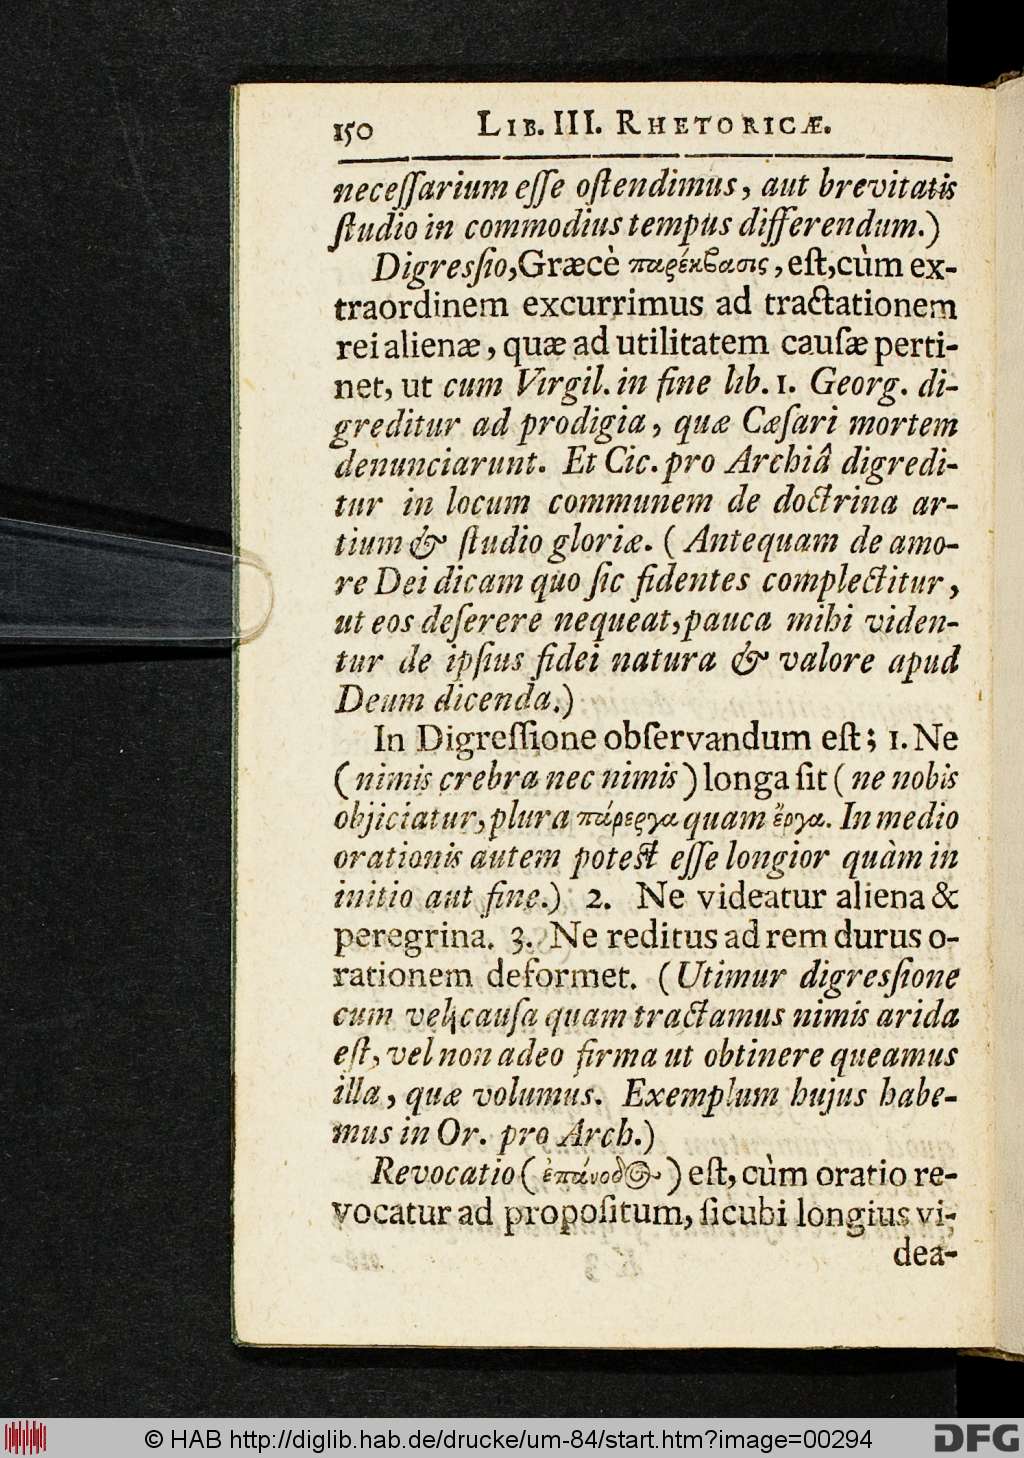 150 LIB. III. RHETORICÆ.
neceſſarium eſſe oſtendimus, aut brevitatis
ſtudio in commodius tempus differendum.)
Digresſio, Græcè παρέκβασις, eſt, cùm ex-
traordinem excurrimus ad tractationem
rei alienæ, quæ ad utilitatem cauſæ perti-
net, ut cum Virgil. in fine lib. 1. Georg. di-
greditur ad prodigia, quæ Cæſari mortem
denunciarunt. Et Cic. pro Archiâ digredi-
tur in locum communem de doctrina ar-
tium & ſtudio gloriæ. (Antequam de amo-
re Dei dicam quo ſic fidentes complectitur,
ut eos deſerere nequeat, pauca mihi viden-
tur de ipſius fidei natura & valore apud
Deum dicenda.)
In Digreſſione obſervandum eſt; 1. Ne
(nimis crebra nec nimis) longa ſit (ne nobis
objiciatur, plura πάρεργα quam ἔργα. In medio
orationis autem potest eſſe longior quàm in
initio aut fine.) 2. Ne videatur aliena &
peregrina. 3. Ne reditus ad rem durus o-
rationem deformet. (Utimur digresſione
cum vel cauſa quam tractamus nimis arida
eſt, vel non adeo firma ut obtinere queamus
illa, quæ volumus. Exemplum hujus habe-
mus in Or. pro Arch.)
Revocatio (ἐπάνοδος) eſt, cùm oratio re-
vocatur ad propoſitum, ſicubi longius vi-
dea-
© HAB http://diglib.hab.de/drucke/um-84/start.htm?image=00294
DFG